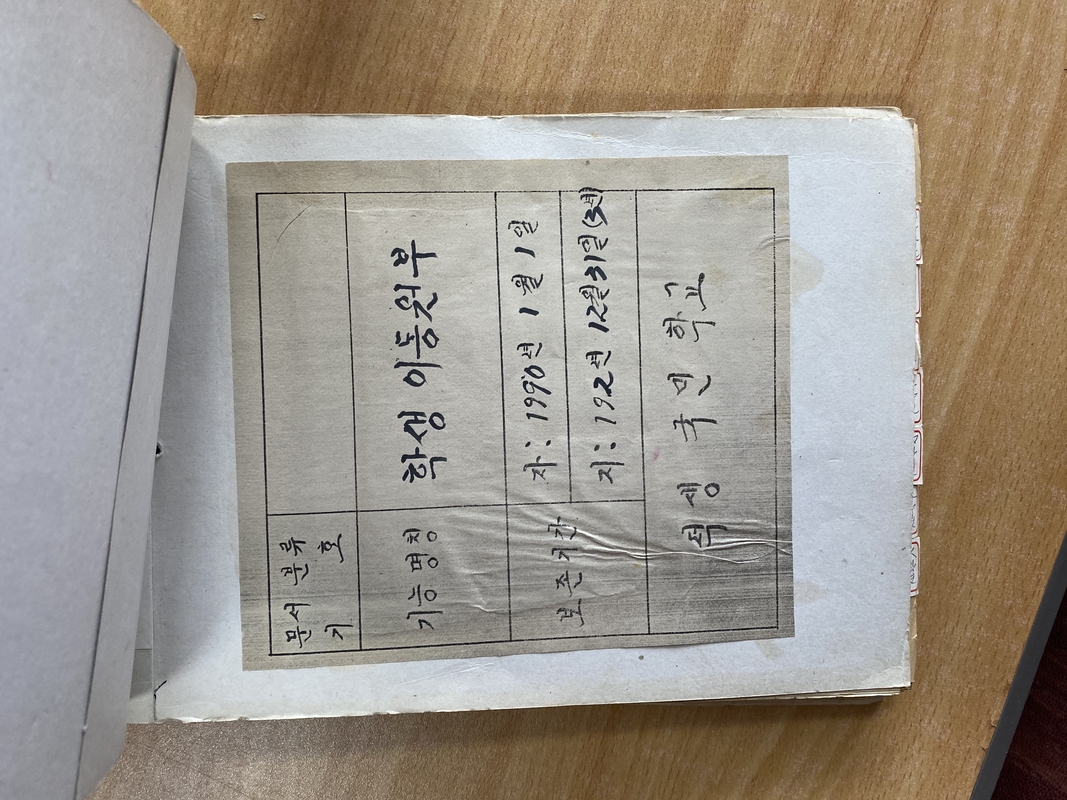 문서 분류
기 호
기능 명칭
학생 이동원부
보존기간
자: 1990년 1월 1일
지: 192년 12월 31일 (3년)
석생 국민학교